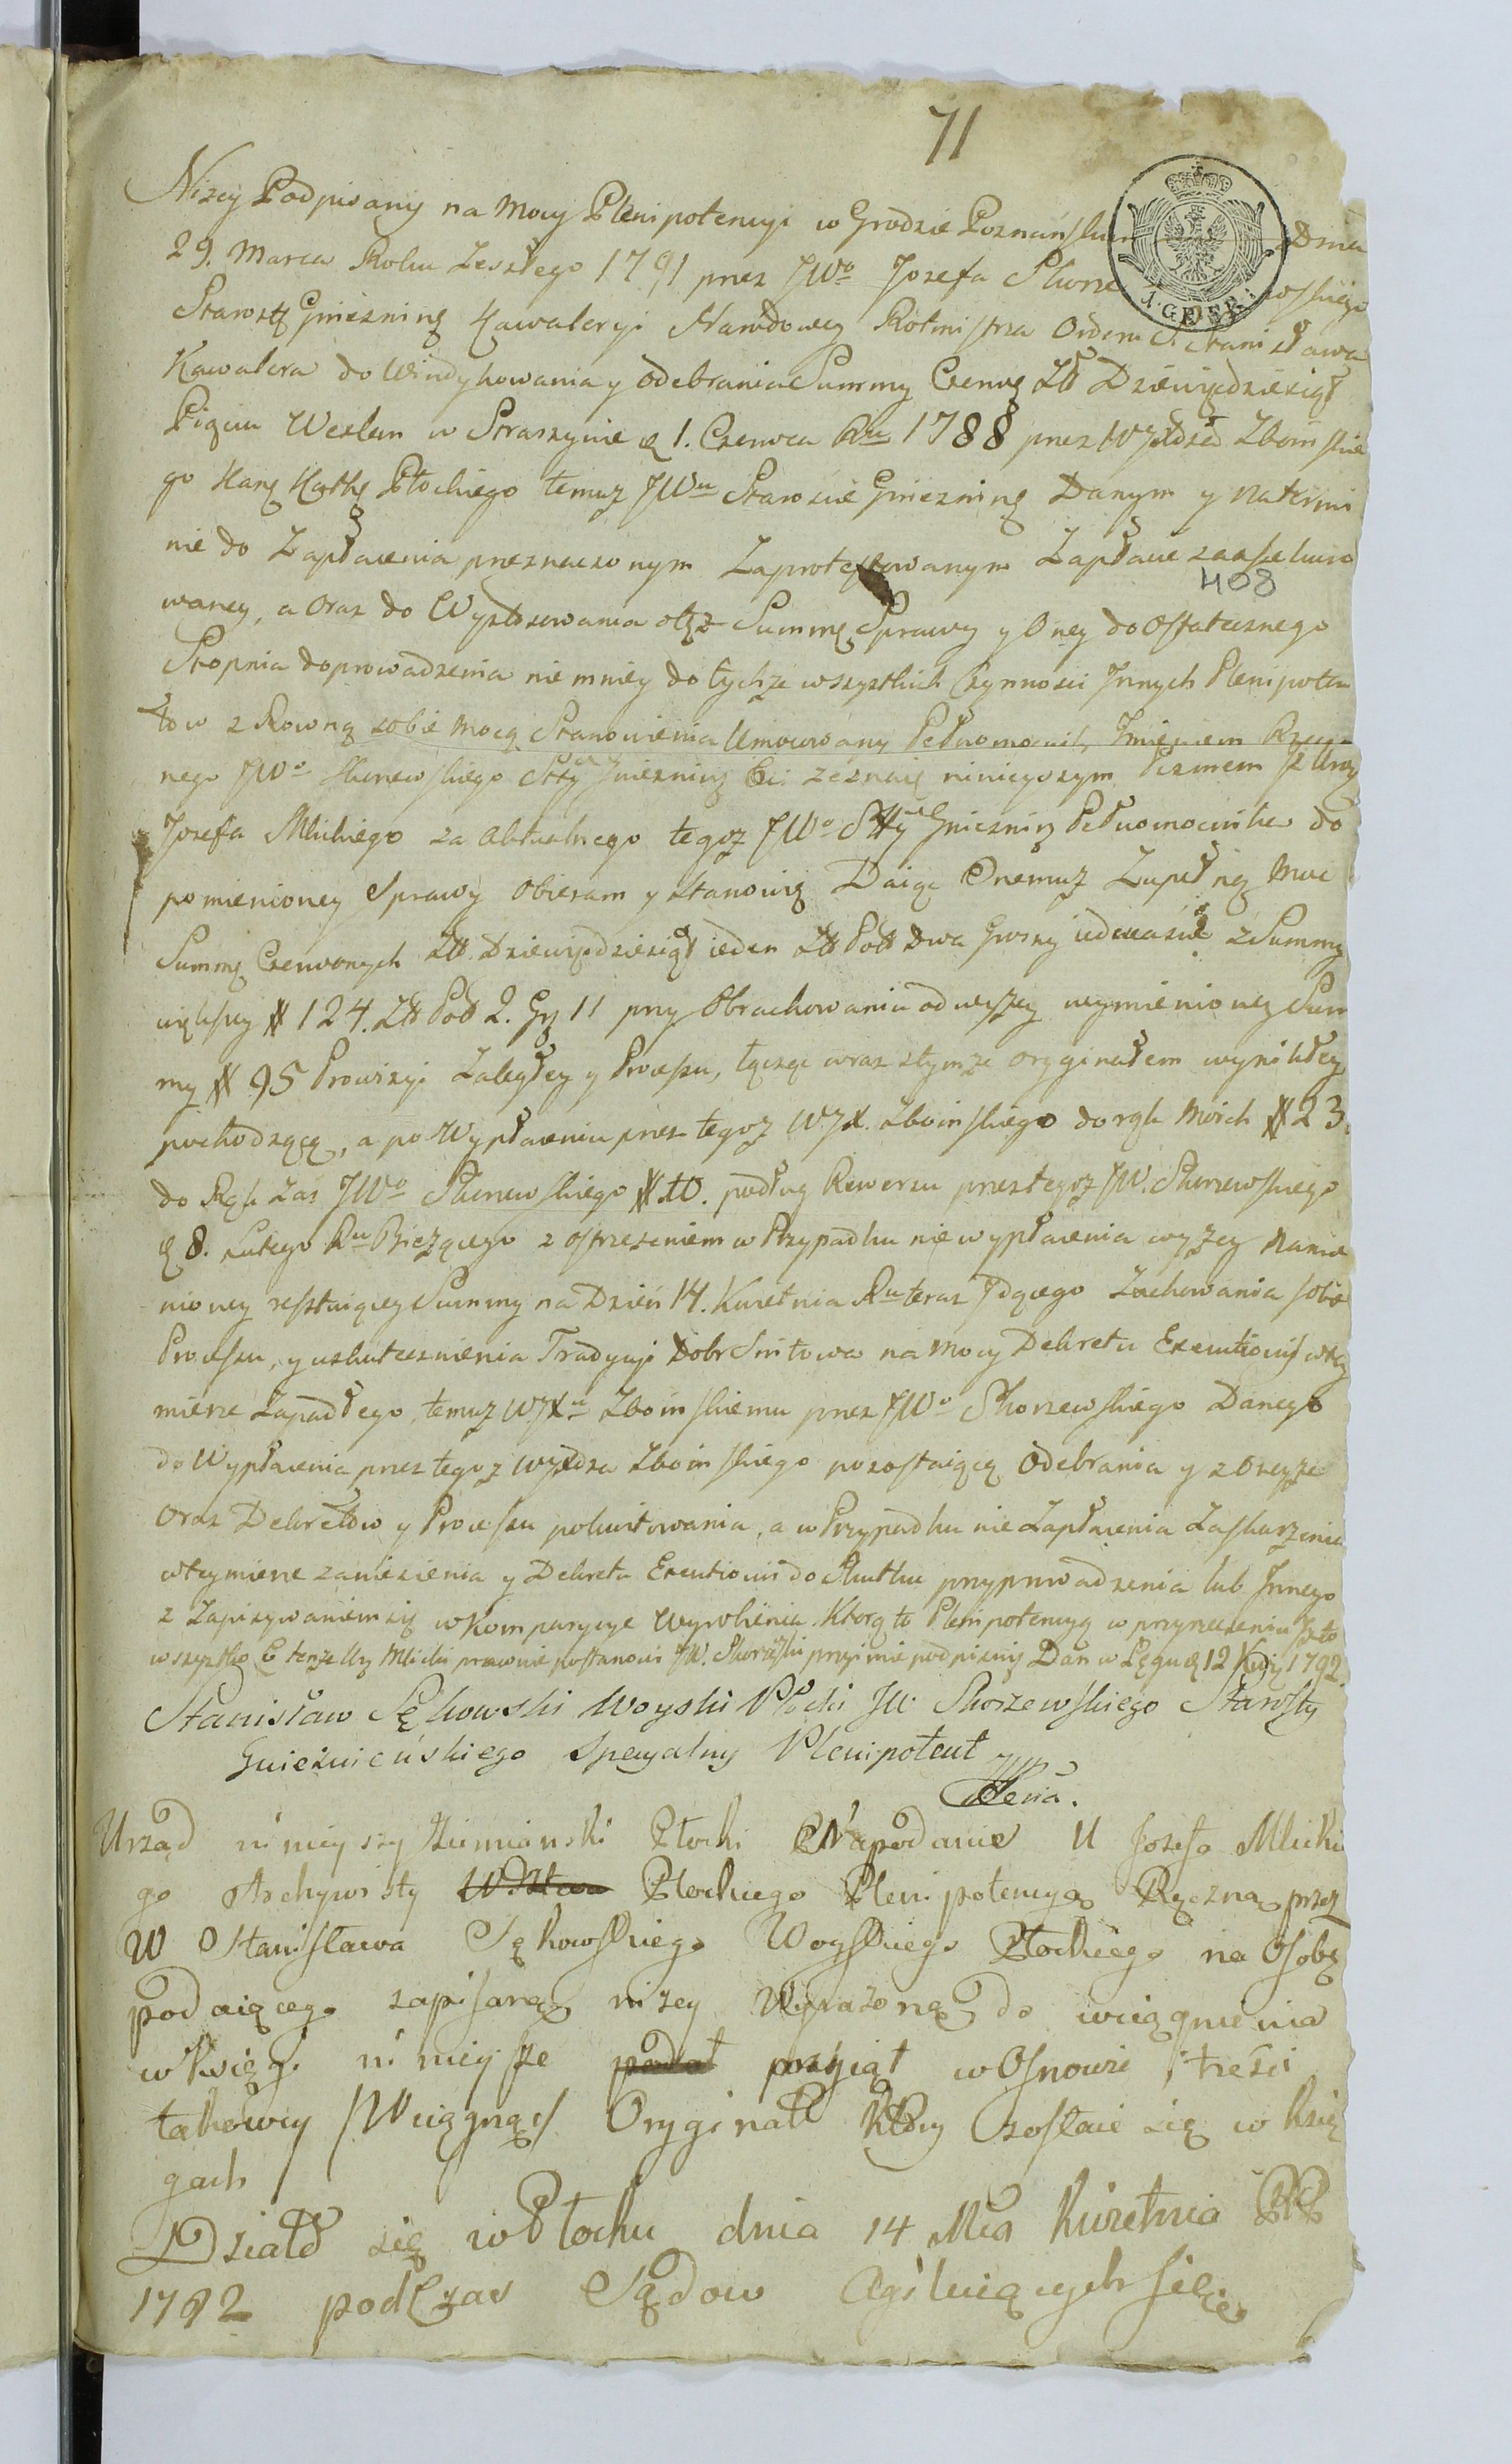 71
Nizey Podpisany na mocy Plenipotencyi w Grodzie Poznańskim Dnia
29. Marca Roku Zeszłego 1791 przez JWo Jozefa Skorze wskiego
Starostę Gniezninę Kawaleryi Narodowey Rotmistrza Orderu S. Stanisława
Kawalera do Windykowania y odebrania Summy Czerwę Złł Dziewięcdziesiąt
Pięciu Wexlem w Straszynie 1. Czerwca Ru 1788 przez WJXdza Zboinskie
go Kan Kathę Płockiego temuz JWu Staroscie Gniezninę Danym y na termi
nie do Zapłacenia przeznaczonym Zaprotestowanym Zapłacie zaasekuro
408
waney, a oraz do Wyprosowania otęz Summę Sprawy y Oney do ostatecznego
Stopnia doprowadzenia niemniey do tychze wszystkich Czynnosci Innych Plenipoten
tow z Rowną sobie mocą Stanowienia Umocowany Pełnomocnik, Imieniem Rzeczo
nego JWo Skorzewskiego Stty Gniezninę &c. zeznaię ninieyszym Pismem Iz Urzę
Jozefa Mlickiego za aktualnego tegoz JWo Stty Gniezninę Pełnomocnika do
pomienioney Sprawy Obieram y stanowię Daiąc Onemuz Zupełnę Moc
Summę Czerwonych Złł. Dziewięcdziesiąt ieden Złł Poll Dwa Groszy iedenascie z Summy
więkzey # 124. Złł Poll 2. Gr 11 przy Obrachowaniu od wyzey wymienioney Sum
my # 95 Prowizyi Zaległey y Processu, łącząc wraz z tymze oryginałem wynikłey
pochodzącą, a po Wypłaceniu przez tegoz WJX. Zboinskiego do rąk Moich # 23.
do Rąk Zas JWo Skorzewskiego # 10. podług Rewersu przez tegoz JW. Skorzewskiego
8. Lutego Ru Biezącego z ostrzezeniem w Przypadku nie wypłacenia wyzey Namie
nioney restuiącey Summy na Dzień 14. Kwietnia Ru teraz Idącego Zachowania sobie
Processu, y uskutecznienia Tradycyi Dobr Smiłowa na mocy Dekretu Executionis w tey
mierze Zapadłego, temuz WJXu Zboinskiemu przez JWo Skorzewskiego Danego
do Wypłacenia przez tegoz WJXdza Zboinskiego pozostaiącą Odebrania y z Oneyze
oraz Dekretow y Processu pokwitowania, a w Przypadku nie Zapłacenia Zaskarzenia
w teymierze zaniesienia y Dekretu Executionis do Skutku przyprowadzenia lub Innego
z Zapisywaniem się w Komparycye Wyrobienia. Ktorą to Plenipotencyą w przyrzeczeniu Iz to
wszystko Co tenze Urz Mlicki prawnie postanowi JW. Skorzewski przyimie podpisuię Dan w Łęgu 12 Kwię 1792.
Stanisław Sękowski Woyski Płocki JW. Skorzewskiego Starosty
Gniezninskiego Specyalny Plenipotent
Urząd ninieyszy Ziemianski Płocki Na podanie U Jozefa Mlickie
go Archywisty Płockiego Plenipotencyą Ręczną przez
W Stanisława Sękowskiego Woyskiego Płockiego na Osobę
podaiącego zapisaną nizey Wyrazoną do wciągnienia
w Xsięgi ninieysze podał przyiął w Osnowie i tresci
takowey /Wciągnąć/ Oryginał Ktory zostaie się w Xsię
gach
Działo się w Płocku dnia 14 Mca Kwietnia
1792 podczas Sądow Agituiących się